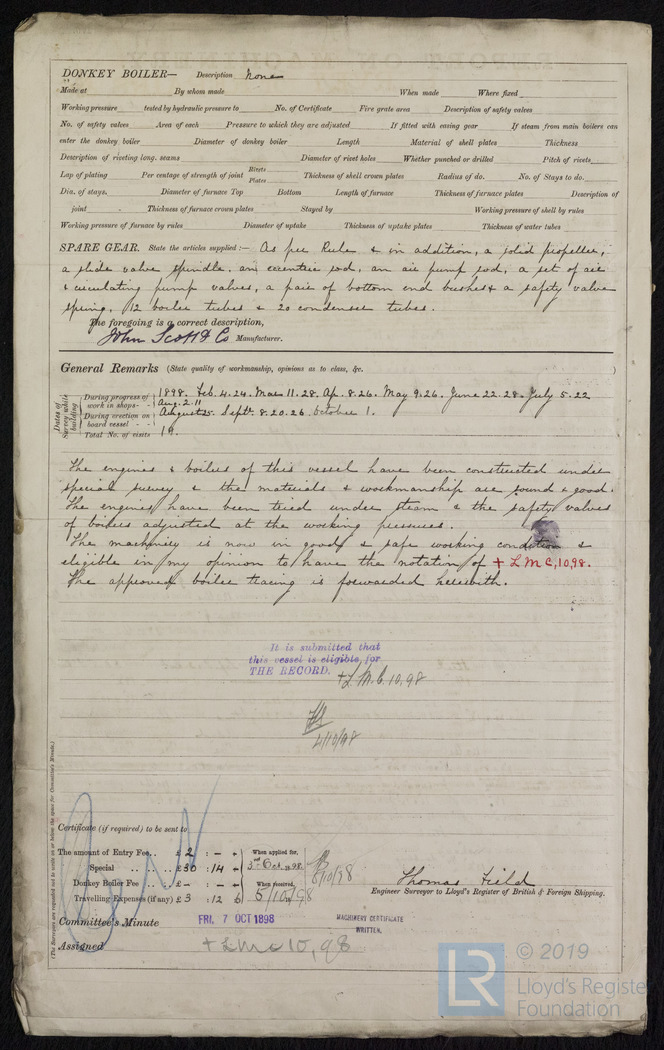 DONKEY BOILER— Description None
Made at By whom made When made Where fixed
Working pressure tested by hydraulic pressure to No. of Certificate Fire grate area Description of safety valves
No. of safety valves Area of each Pressure to which they are adjusted If fitted with easing gear If steam from main boilers can
enter the donkey boiler Diameter of donkey boiler Length Material of shell plates Thickness
Description of riveting long. seams Diameter of rivet holes Whether punched or drilled Pitch of rivets
Lap of plating Per centage of strength of joint Rivets Plates Thickness of shell crown plates Radius of do. No. of Stays to do.
Dia. of stays. Diameter of furnace Top Bottom Length of furnace Thickness of furnace plates Description of
joint Thickness of furnace crown plates Stayed by Working pressure of shell by rules
Working pressure of furnace by rules Diameter of uptake Thickness of uptake plates Thickness of water tubes
SPARE GEAR. State the articles supplied:— As per Rule & in addition, a solid propeller,
a slide valve spindle, an eccentric rod, an air pump rod, a set of air
& circulating pump valves, a pair of bottom end bushes & a safety valve
spring, 12 boiler tubes & 20 condenser tubes.
The foregoing is a correct description,
John Scott & Co Manufacturer.
General Remarks (State quality of workmanship, opinions as to class, &c. )
Dates of Survey while building
During progress of work in shops - - 1898. Feb. 4. 24. Mar 11. 28. Ap. 8. 26. May 9. 26. June 22. 28. July 5. 22
Aug. 2. 11
During erection on board vessel - - August 25. Septr. 8. 20. 26. October 1.
Total No. of visits 19.
The engines & boilers of this vessel have been constructed under
special survey & the materials & workmanship are sound & good.
The engines have been tried under steam & the safety valves
of boilers adjusted at the working pressures.
The machinery is now in good & safe working condition &
eligible in my opinion to have the notation of + L M C, 10, 98.
The approved boiler tracing is forwarded herewith.
It is submitted that
this vessel is eligible for
THE RECORD. + L. M. C. 10, 98
4/10/98
(The Surveyors are requested not to write on or below the space for Committee's Minute.)
Certificate (if required) to be sent to
The amount of Entry Fee.. £ 2 : - : - When applied for,
Special .. .. £ 30 : 14 : - 3rd Oct. 1898.
Donkey Boiler Fee .. .. £ - : - : When received,
Travelling Expenses (if any) £ 3 : 12 : 6 5/10/98
8/10/98
Thomas Field
Engineer Surveyor to Lloyd's Register of British & Foreign Shipping.
Committee's Minute FRI. 7 OCT 1898
MACHINERY CERTIFICATE
WRITTEN.
Assigned + L M C 10, 98
LR © 2019
Lloyd's Register
Foundation